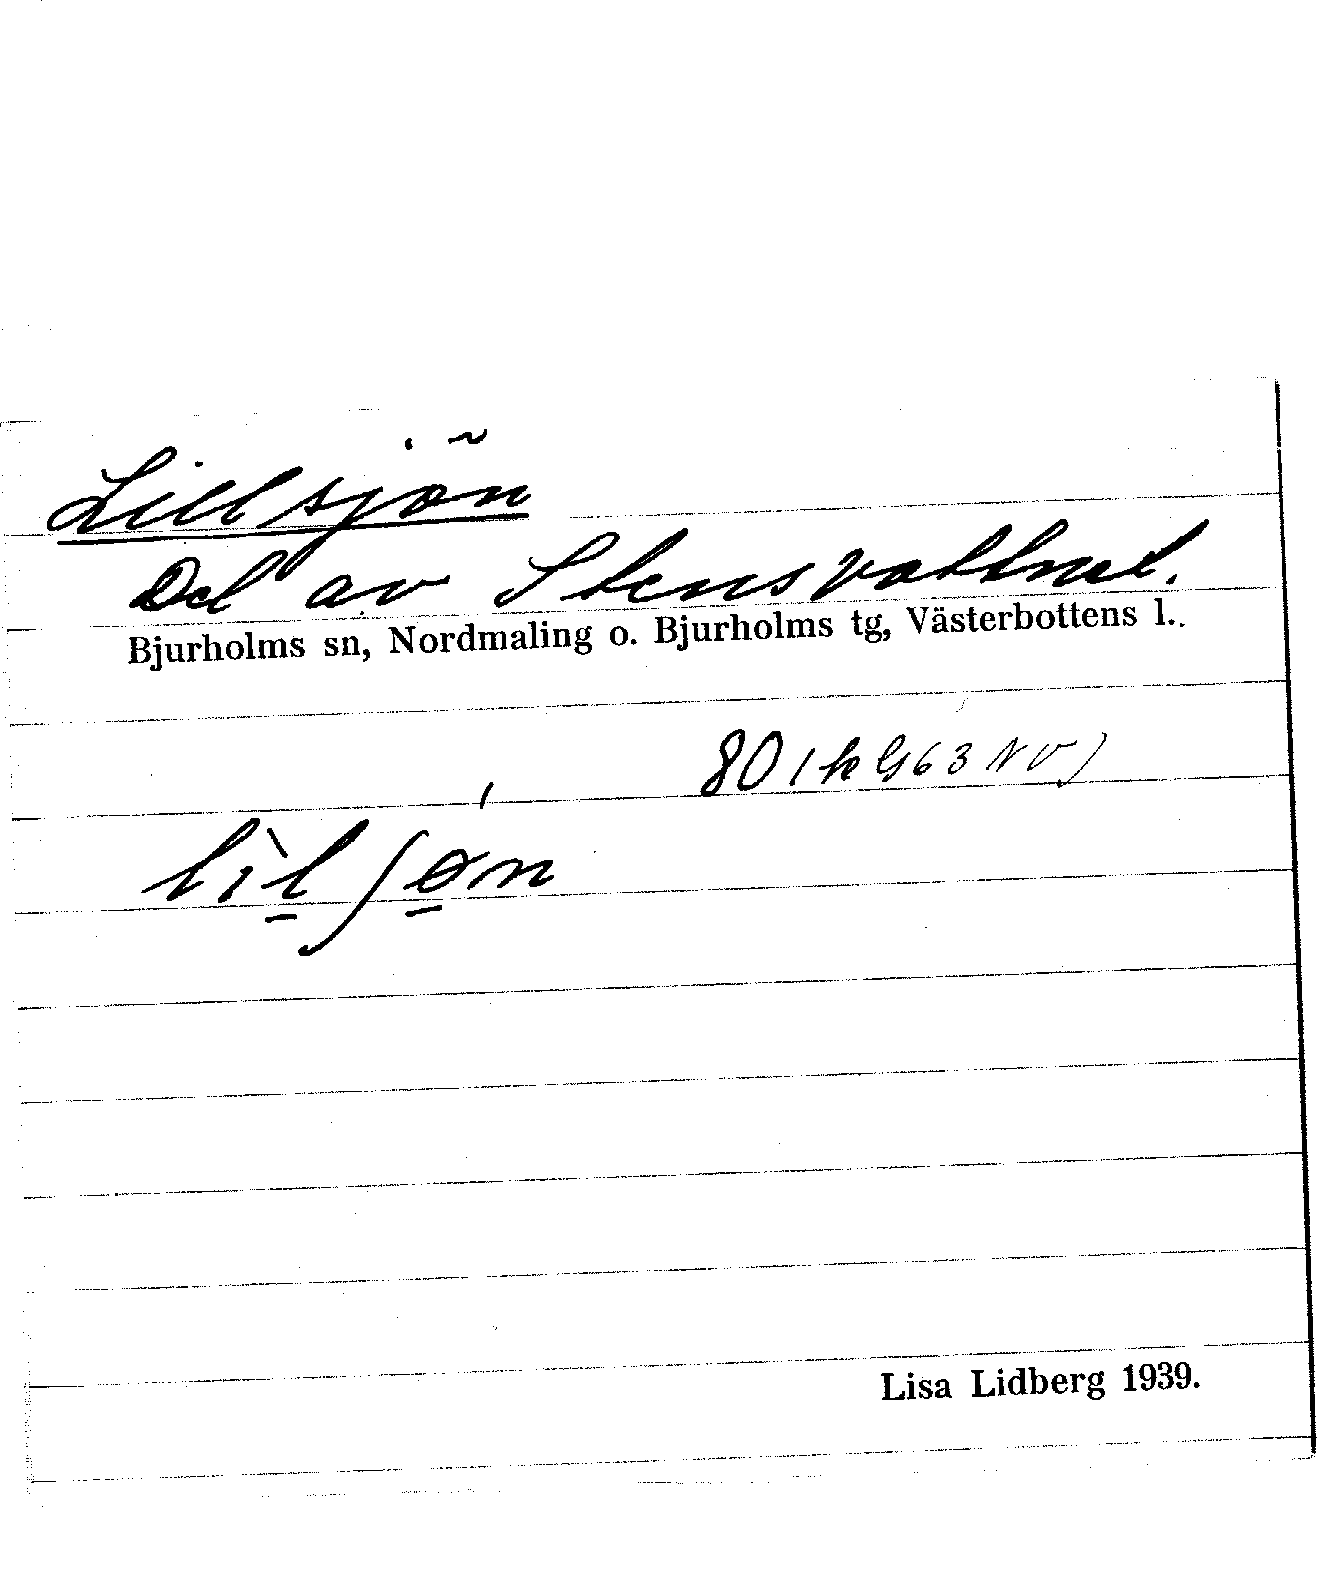 Lillsjön
Del av Stensvattnet.
Bjurholms sn, Nordmaling o. Bjurholms tg, Västerbottens l..
80 (k G63 NV)
lìl̠ʃǿ̠n
Lisa Lidberg 1939.